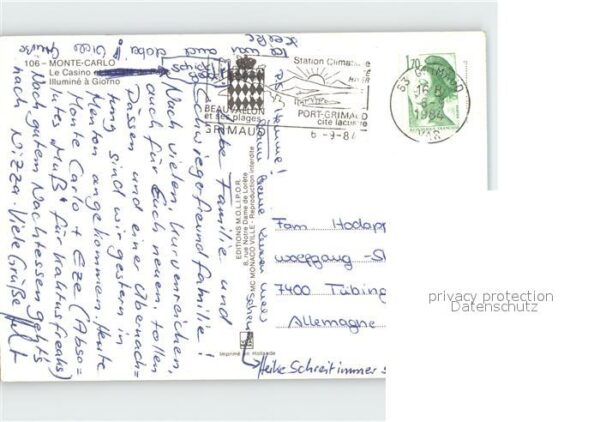 106 - MONTE-CARLO
Le Casino
Illuminé à Giorno
BEAUVALLON
et ses plages
GRIMAUD
Station Climatique
PORT-GRIMAUD
cité lacustre
6-9-84
1,70
83 GRIMAUD
16 H
6-9
1984
VAR
Liebe Familie und
Schwiegerfreundfamilie!
Nach vielen, kurvenreichen,
auch für Euch neuen, tollen
Passen und einer Übernach=
tung sind wir gestern in
Menton angekommen. Heute
Monte Carlo + Eze (Abso=
lutes "Muß" für Kaktusfreaks)
Nach gutem Nachtessen geht's
nach Nizza. Viele Grüße
EDITIONS M.O.L.I.P.O.R.
8, rue Notre Dame de Lorète
MC MONACO VILLE - Reproduction interdite
Imprimé en Hollande
Fam Hodapp
Wolfgang-St
7400 Tübing
Allemagne
Heike Schreit immer s
privacy protection
Datenschutz